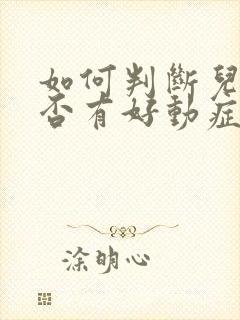 如何判斷兒
否有好動症
涂明心